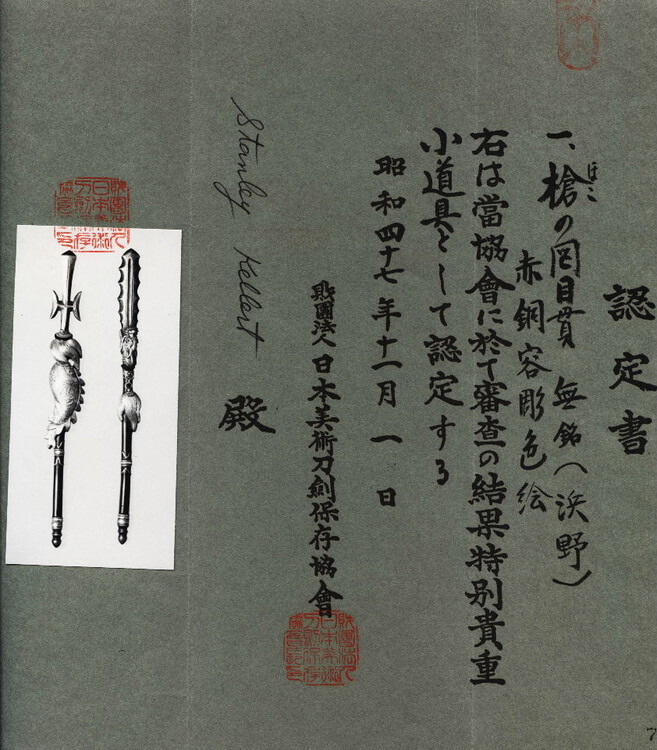 認定書
一、槍の図目貫 無銘(浜野)
ほこ
赤銅容彫色絵
右は當協會に於て審査の結果特別貴重
小道具として認定する
昭和四十七年十一月一日
財團法人日本美術刀劍保存協會
Stanley Kellert
殿
7